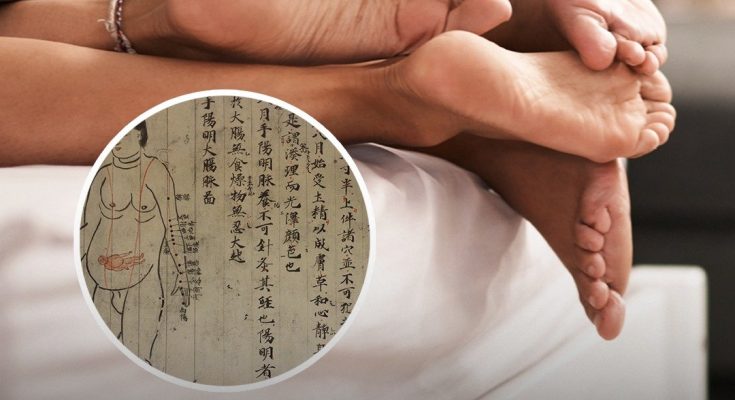 寸半上件諸穴並不可犯
八月始受土精以成膚革和心靜
是謂湊理而光澤顏色也
月手陽明脈養不可針灸其經也陽明者
於大腸無食燥物無忍大起
手陽明大腸脈圖